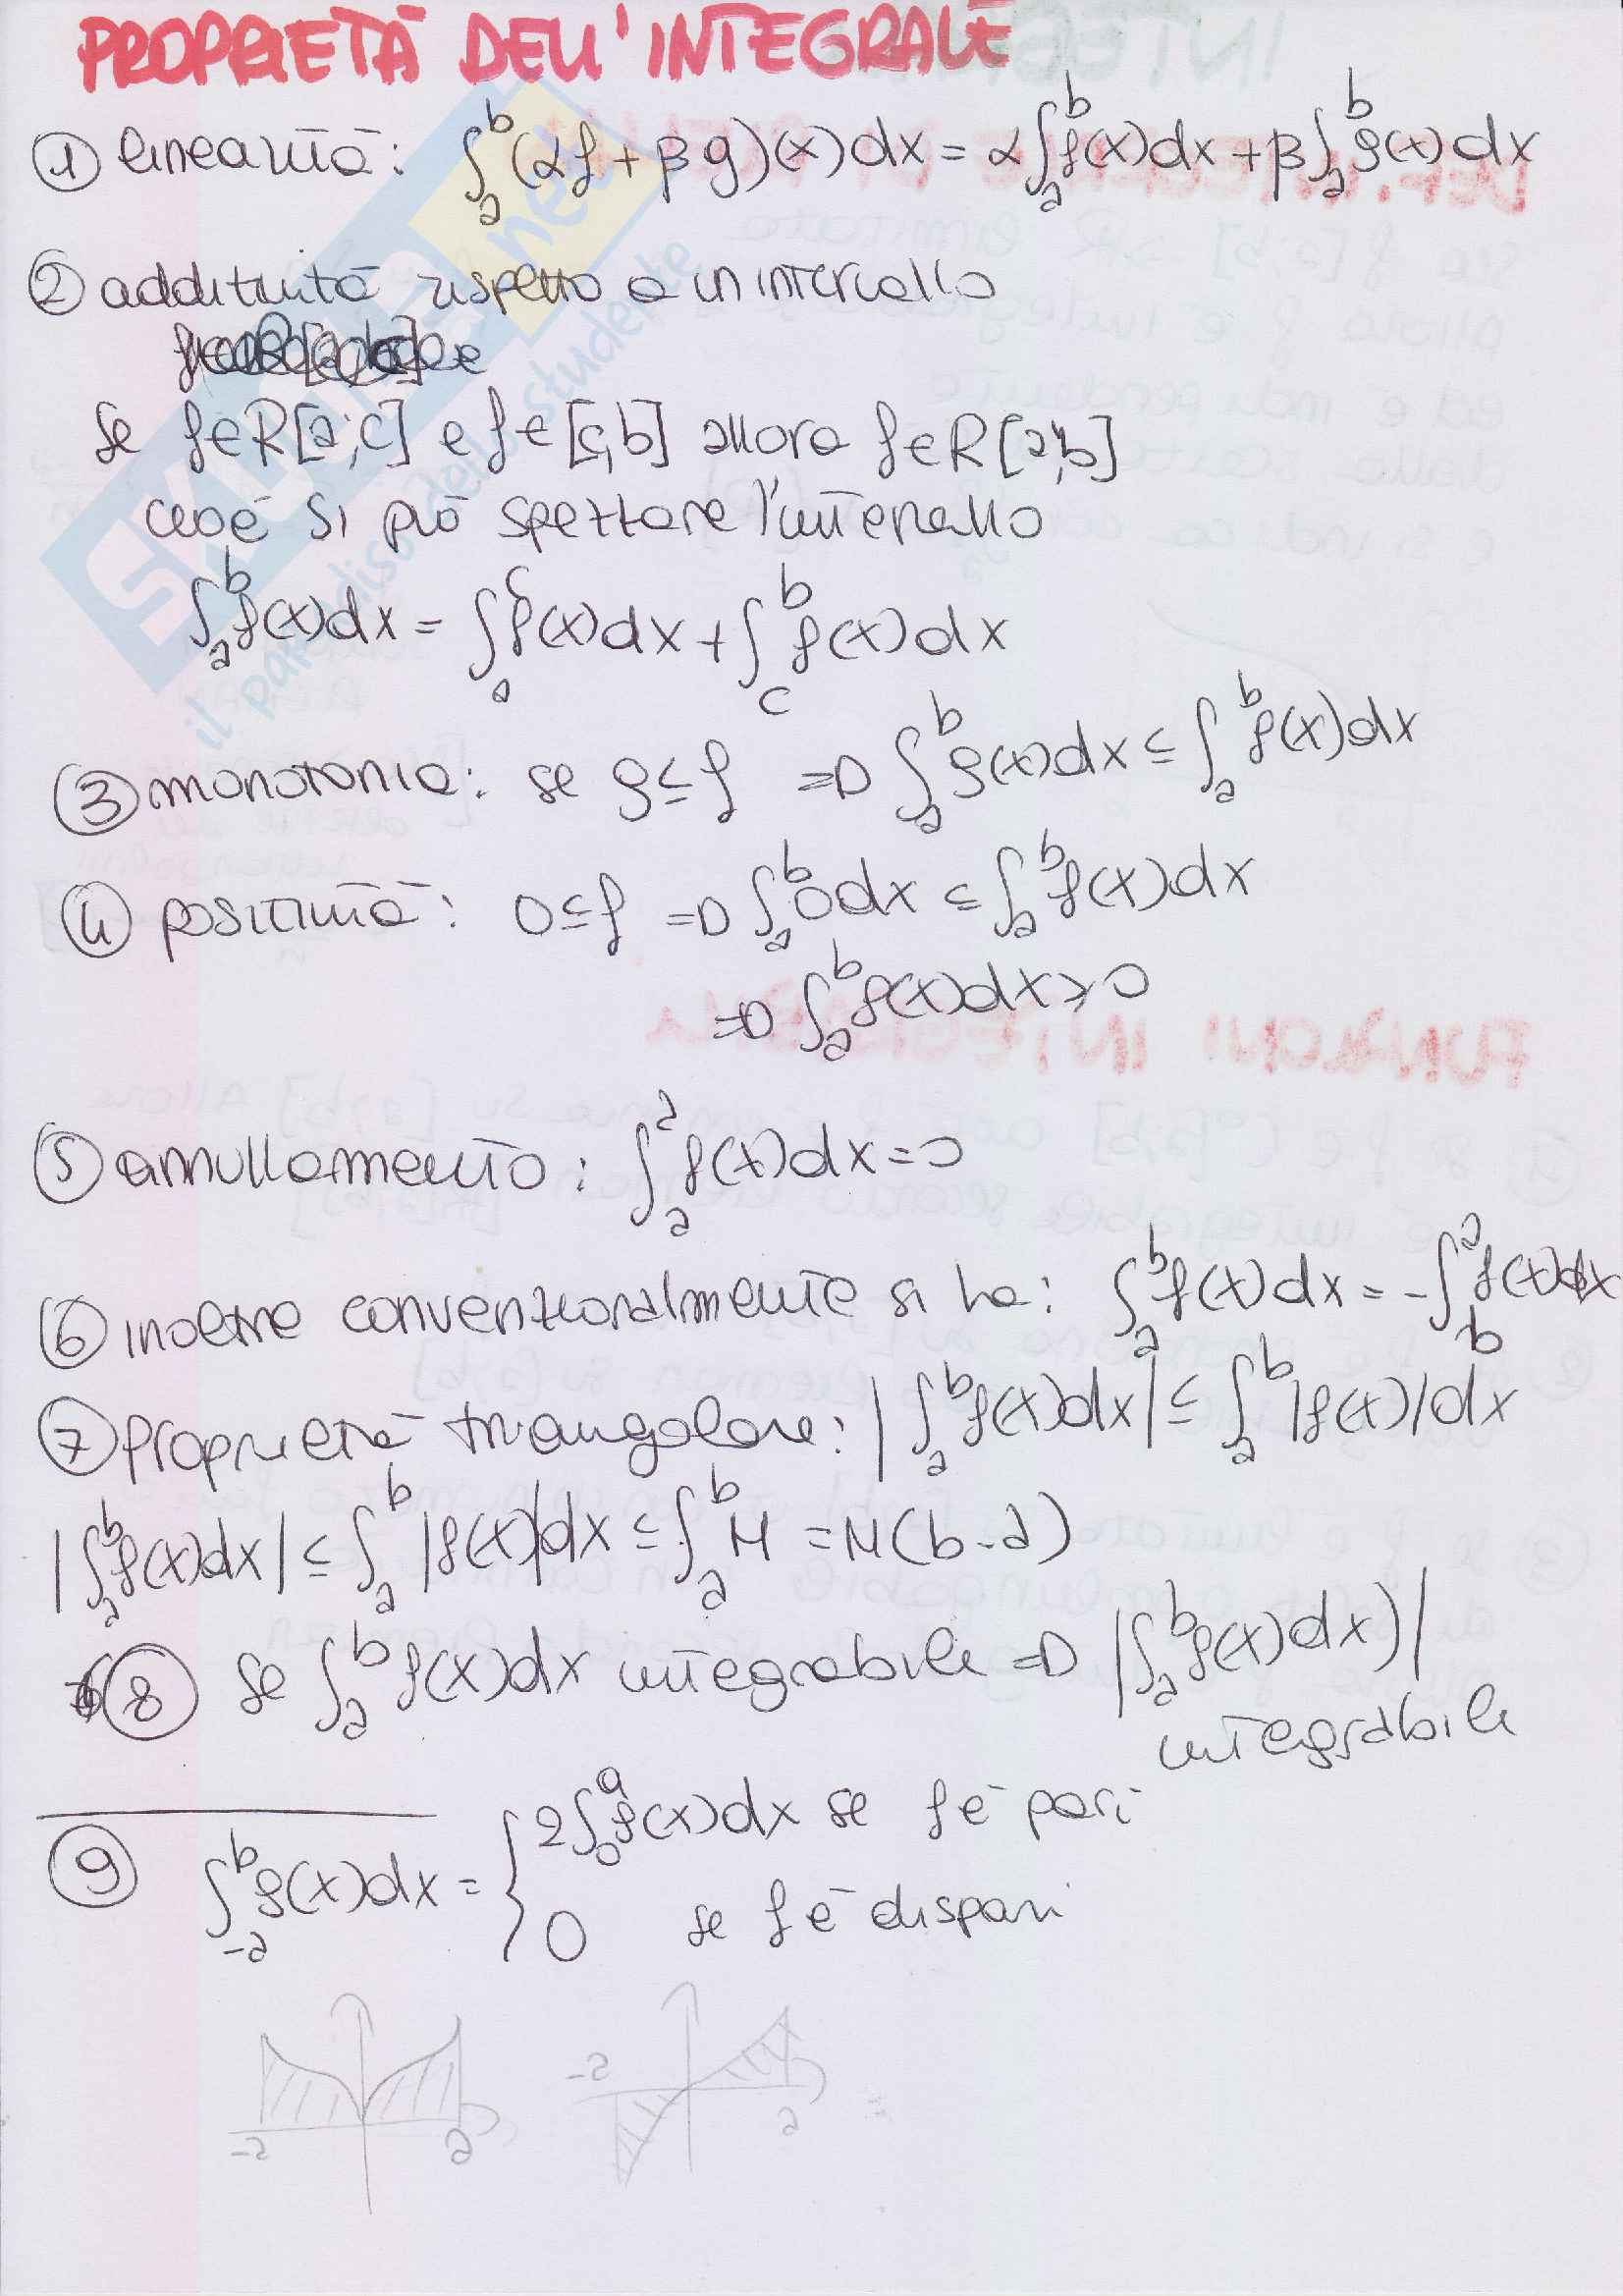 PROPRIETÀ DELL'INTEGRALE
① linearità: ∫_a^b (αf + βg)(x)dx = α∫_a^b f(x)dx + β∫_a^b g(x)dx
② additività rispetto a un intervallo
se f∈R[a;c] e f∈[c,b] allora f∈R[a,b]
cioè si può spezzare l'intervallo
∫_a^b f(x)dx = ∫_a^c f(x)dx + ∫_c^b f(x)dx
③ monotonia: se g≤f ⇒ ∫_a^b g(x)dx ≤ ∫_a^b f(x)dx
④ positività: 0≤f ⇒ ∫_a^b 0dx ≤ ∫_a^b f(x)dx
⇒ ∫_a^b f(x)dx ≥ 0
⑤ annullamento: ∫_a^a f(x)dx = 0
⑥ inoltre convenzionalmente si ha: ∫_a^b f(x)dx = -∫_b^a f(x)dx
⑦ proprietà triangolare: |∫_a^b f(x)dx| ≤ ∫_a^b |f(x)|dx
|∫_a^b f(x)dx| ≤ ∫_a^b |f(x)|dx ≤ ∫_a^b M = M(b-a)
⑧ se ∫_a^b f(x)dx integrabile ⇒ |∫_a^b f(x)dx)|
integrabile
⑨ ∫_{-a}^b f(x)dx = { 2∫_0^a f(x)dx se f è pari
0 se f è dispari
-a a
-a a
SKUOLA.net
il paradiso dello studente